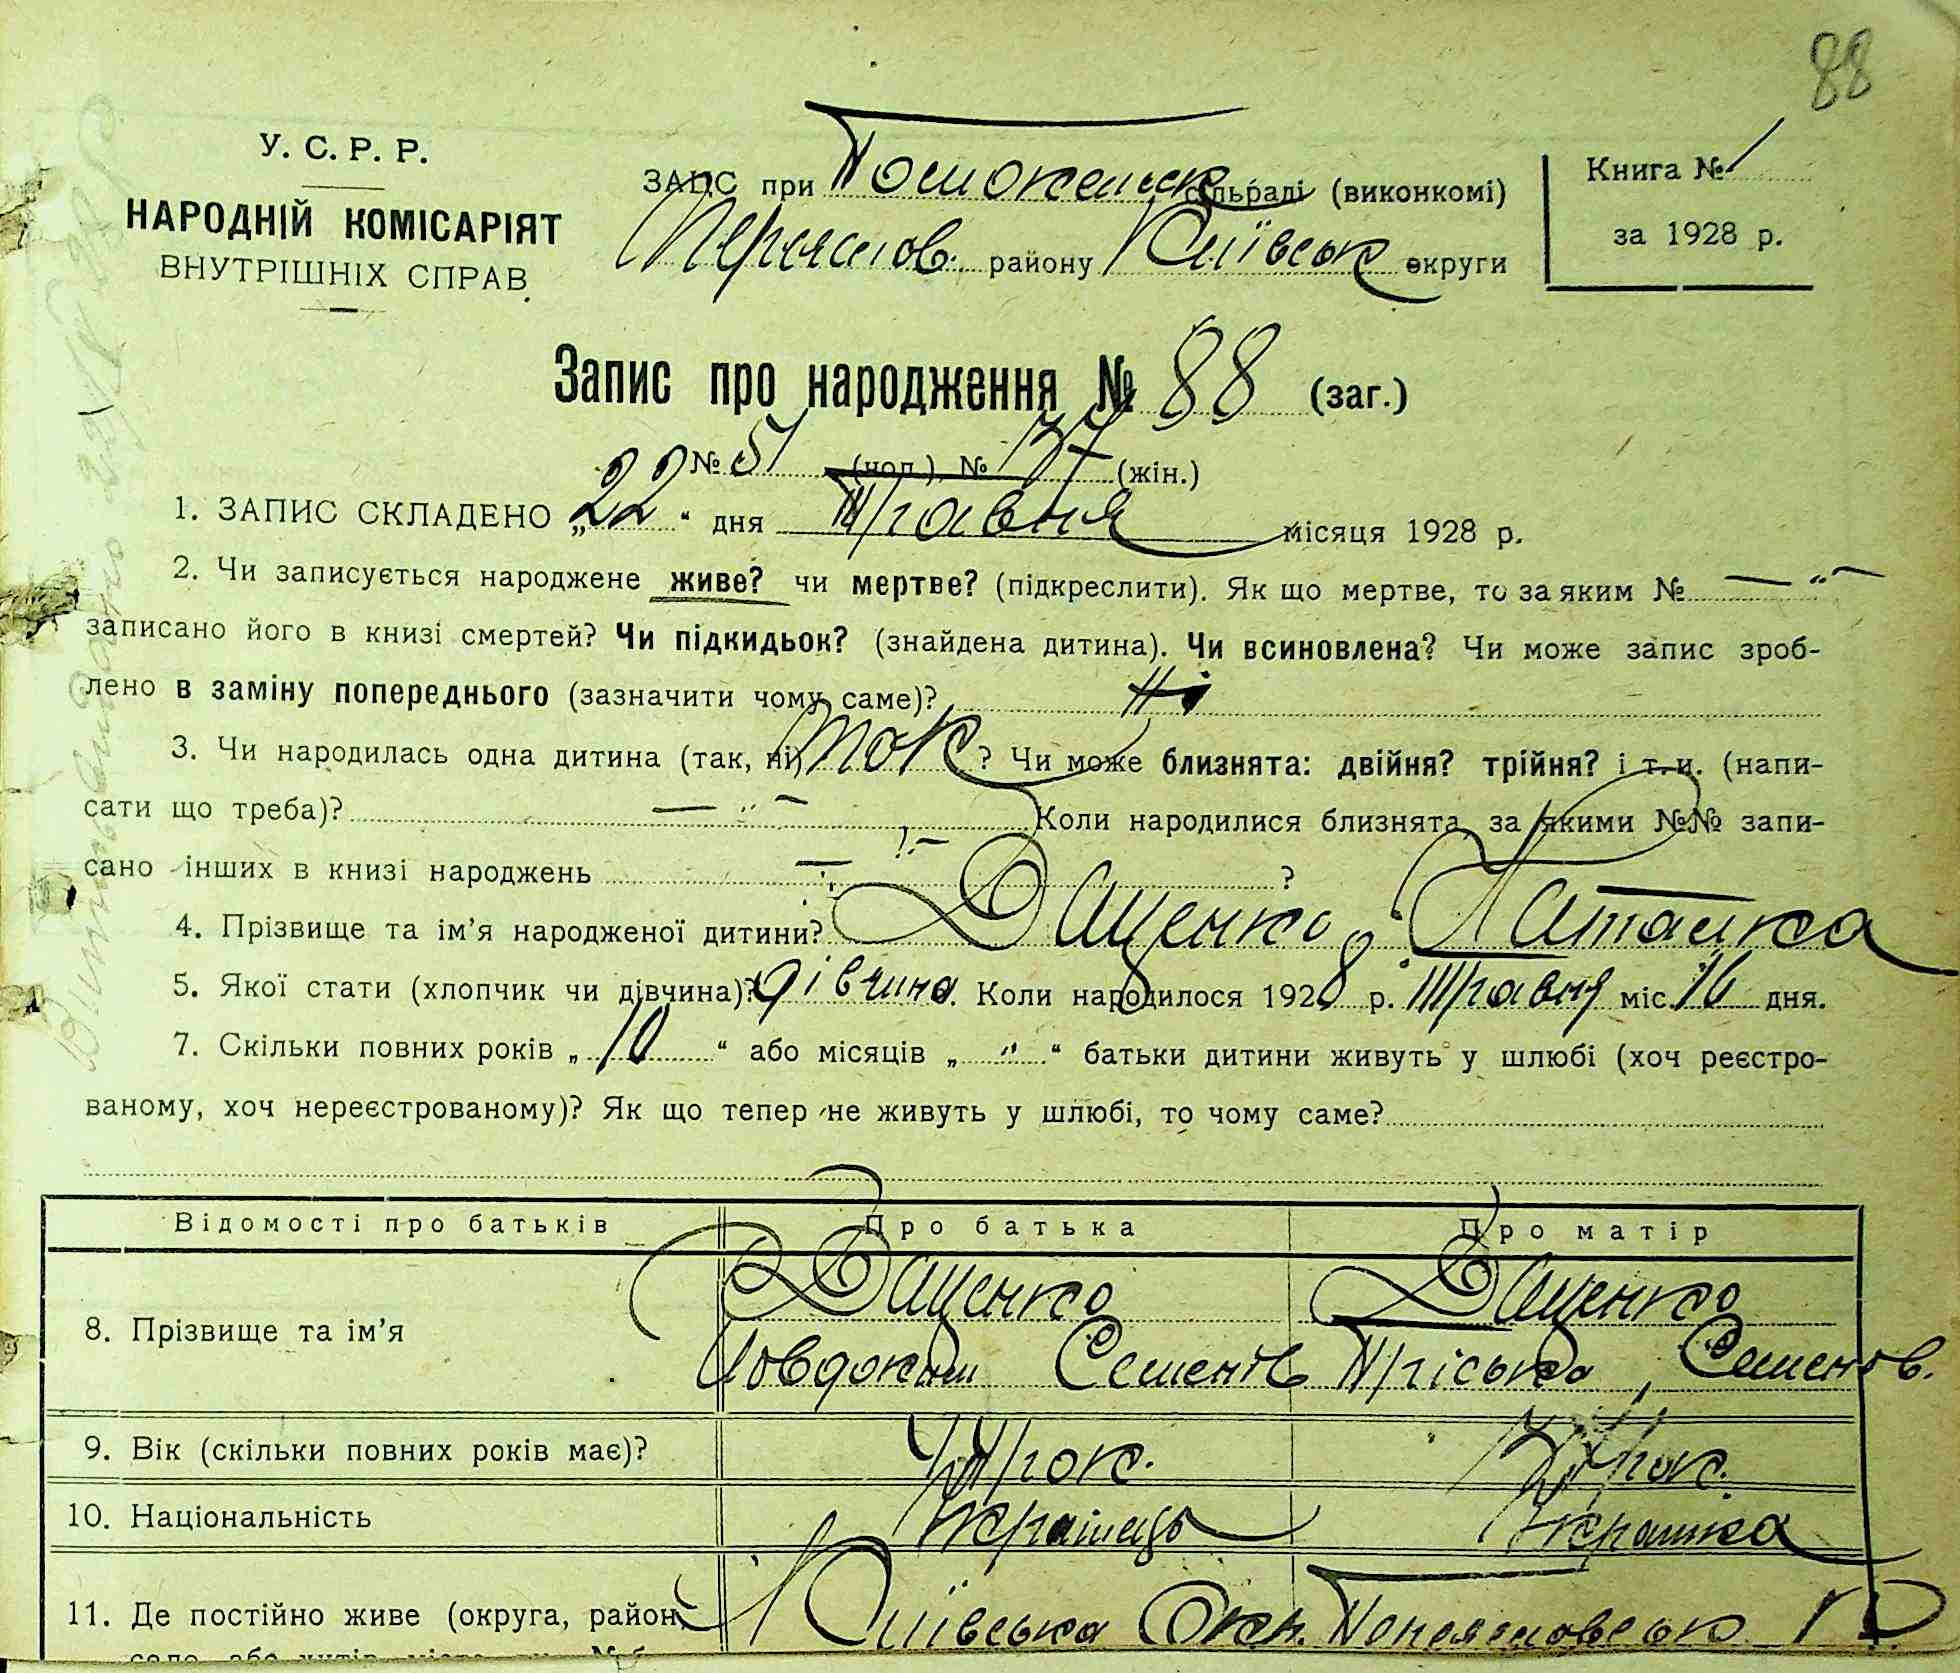 88
У. С. Р. Р.
НАРОДНІЙ КОМІСАРІЯТ
ВНУТРІШНІХ СПРАВ
ЗАПС при сільраді (виконкомі)
району Київськ округи
Книга № 1
за 1928 р.
Запис про народження № 88 (заг.)
№ 51 (чол.), № 37 (жін.)
1. ЗАПИС СКЛАДЕНО „22“ дня Травня місяця 1928 р.
2. Чи записується народжене живе? чи мертве? (підкреслити). Як що мертве, то за яким № — " —
записано його в книзі смертей? Чи підкидьок? (знайдена дитина). Чи всиновлена? Чи може запис зроб-
лено в заміну попереднього (зазначити чому саме)? Ні
3. Чи народилась одна дитина (так, ні) так? Чи може близнята: двійня? трійня? і т. и. (напи-
сати що треба)? — " — Коли народилися близнята, за якими №№ запи-
сано інших в книзі народжень — " — ?
4. Прізвище та ім'я народженої дитини? Даценко Наталка
5. Якої стати (хлопчик чи дівчина)? дівчина. Коли народилося 1928 р. Травня міс. 16 дня.
7. Скільки повних років „10“ або місяців „ " “ батьки дитини живуть у шлюбі (хоч реєстро-
ваному, хоч нереєстрованому)? Як що тепер не живуть у шлюбі, то чому саме?
Відомості про батьків Про батька Про матір
8. Прізвище та ім'я Даценко Даценко
Йовдоким Семенів Пріська, Семенов.
9. Вік (скільки повних років має)? рок. рок.
10. Національність Українець Українка
11. Де постійно живе (округа, район, Київська Окр. Р.